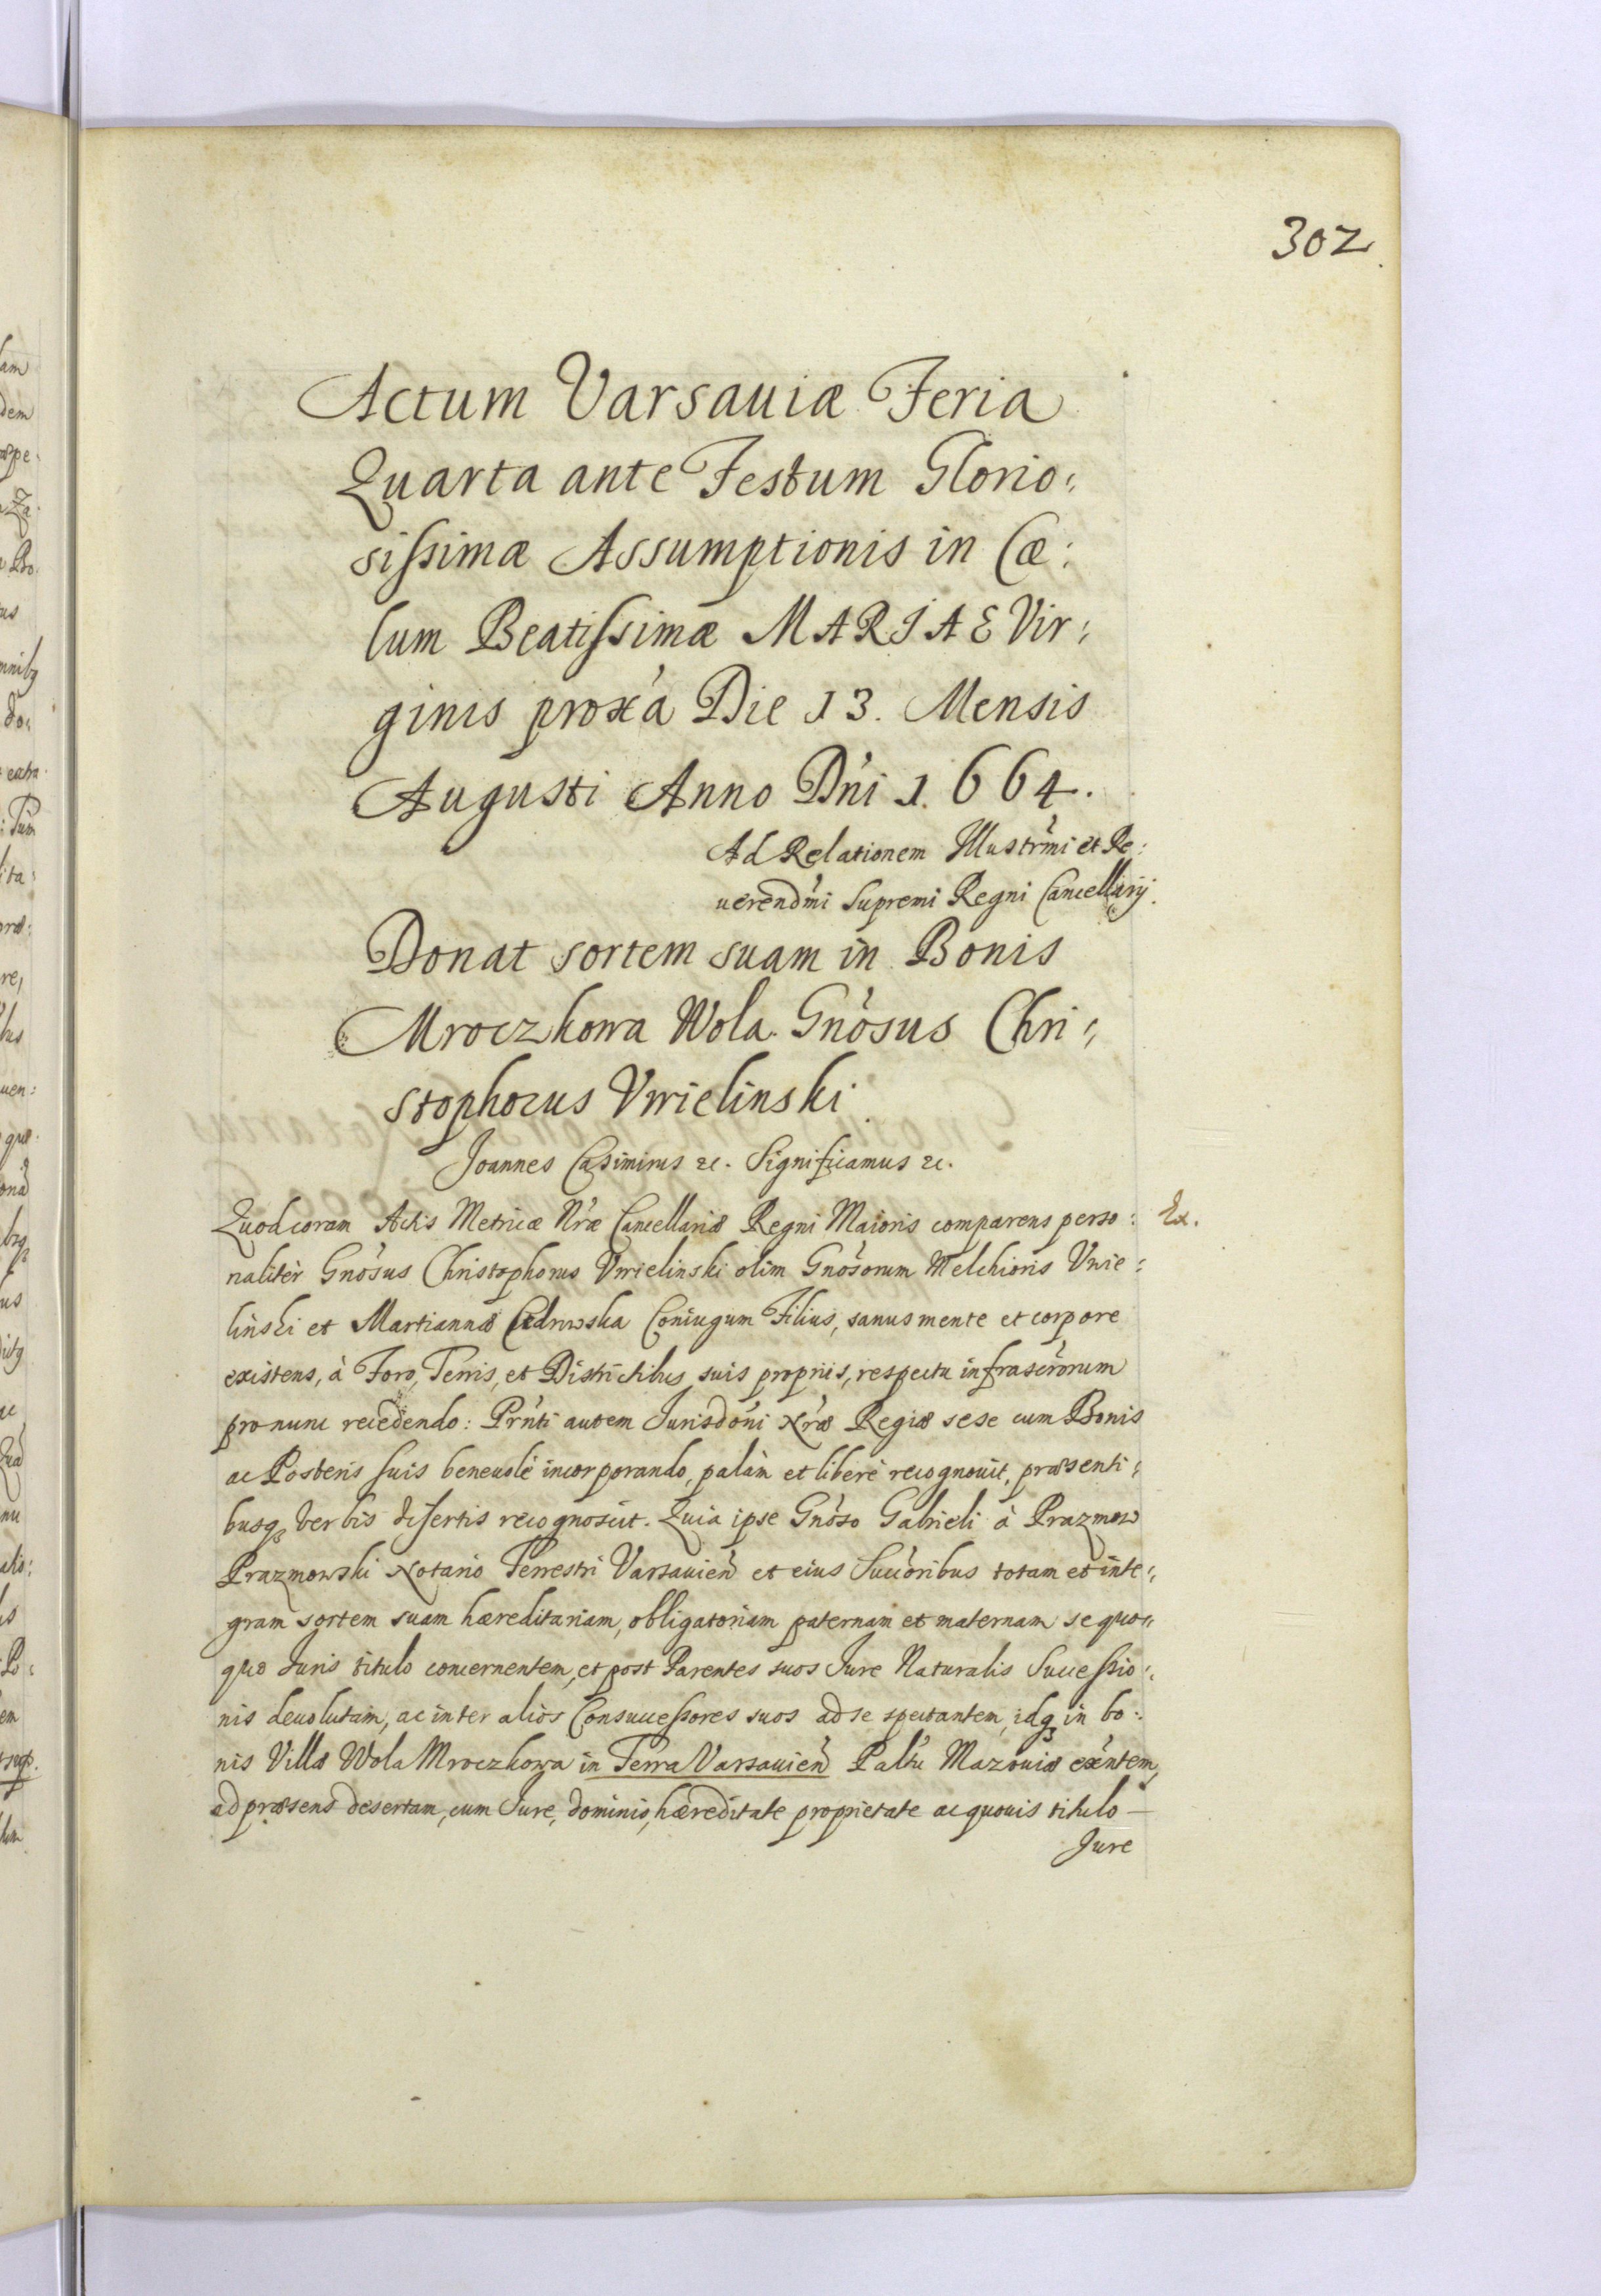 302
Actum Varsauiæ Feria
Quarta ante Festum Glorio:
sissimæ Assumptionis in Cæ:
lum Beatissimæ MARIAE Vir:
ginis proxa Die 13. Mensis
Augusti Anno Dni 1664.
Ad Relationem Illustrmi et Re:
uerendmi Supremi Regni Cancellarij.
Donat sortem suam in Bonis
Mroczkowa Wola Gnosus Chri:
stophorus Uwielinski
Joannes Casimirus etc. Significamus etc.
Quod coram Actis Metricæ Nræ Cancellariæ Regni Maioris comparens perso:
Ex.
naliter Gnosus Christophorus Uwielinski olim Gnosorum Melchioris Uwie:
linski et Martiannæ Coniugum Filius, sanus mente et corpore
existens, à Foro, Terris, et Districtibus suis proprijs, respectu infrascrorum
pro nunc recedendo: Prnti autem Jurisdoni Nræ Regiæ sese cum Bonis
ac Posteris suis beneuolè incorporando, palàm et liberè recognouit, præsenti:
busq verbis disertis recognoscit. Quia ipse Gnoso Gabrieli à Prazmow
Prazmowski Notario Terrestri Varsauien et eius Succoribus totam et inte:
gram sortem suam hæreditariam, obligatoriam paternam et maternam se quo:
quo Juris titulo concernentem, et post Parentes suos Jure Naturalis Successio:
nis deuolutam, ac inter alios Consuccessores suos ad se spectantem, idq in bo:
nis Villæ Wola Mroczkowa in Terra Varsauien Paltu Mazouiæ exntem,
ad præsens desertam, cum Jure, dominio, hæreditate proprietate ac quouis titulo
Jure